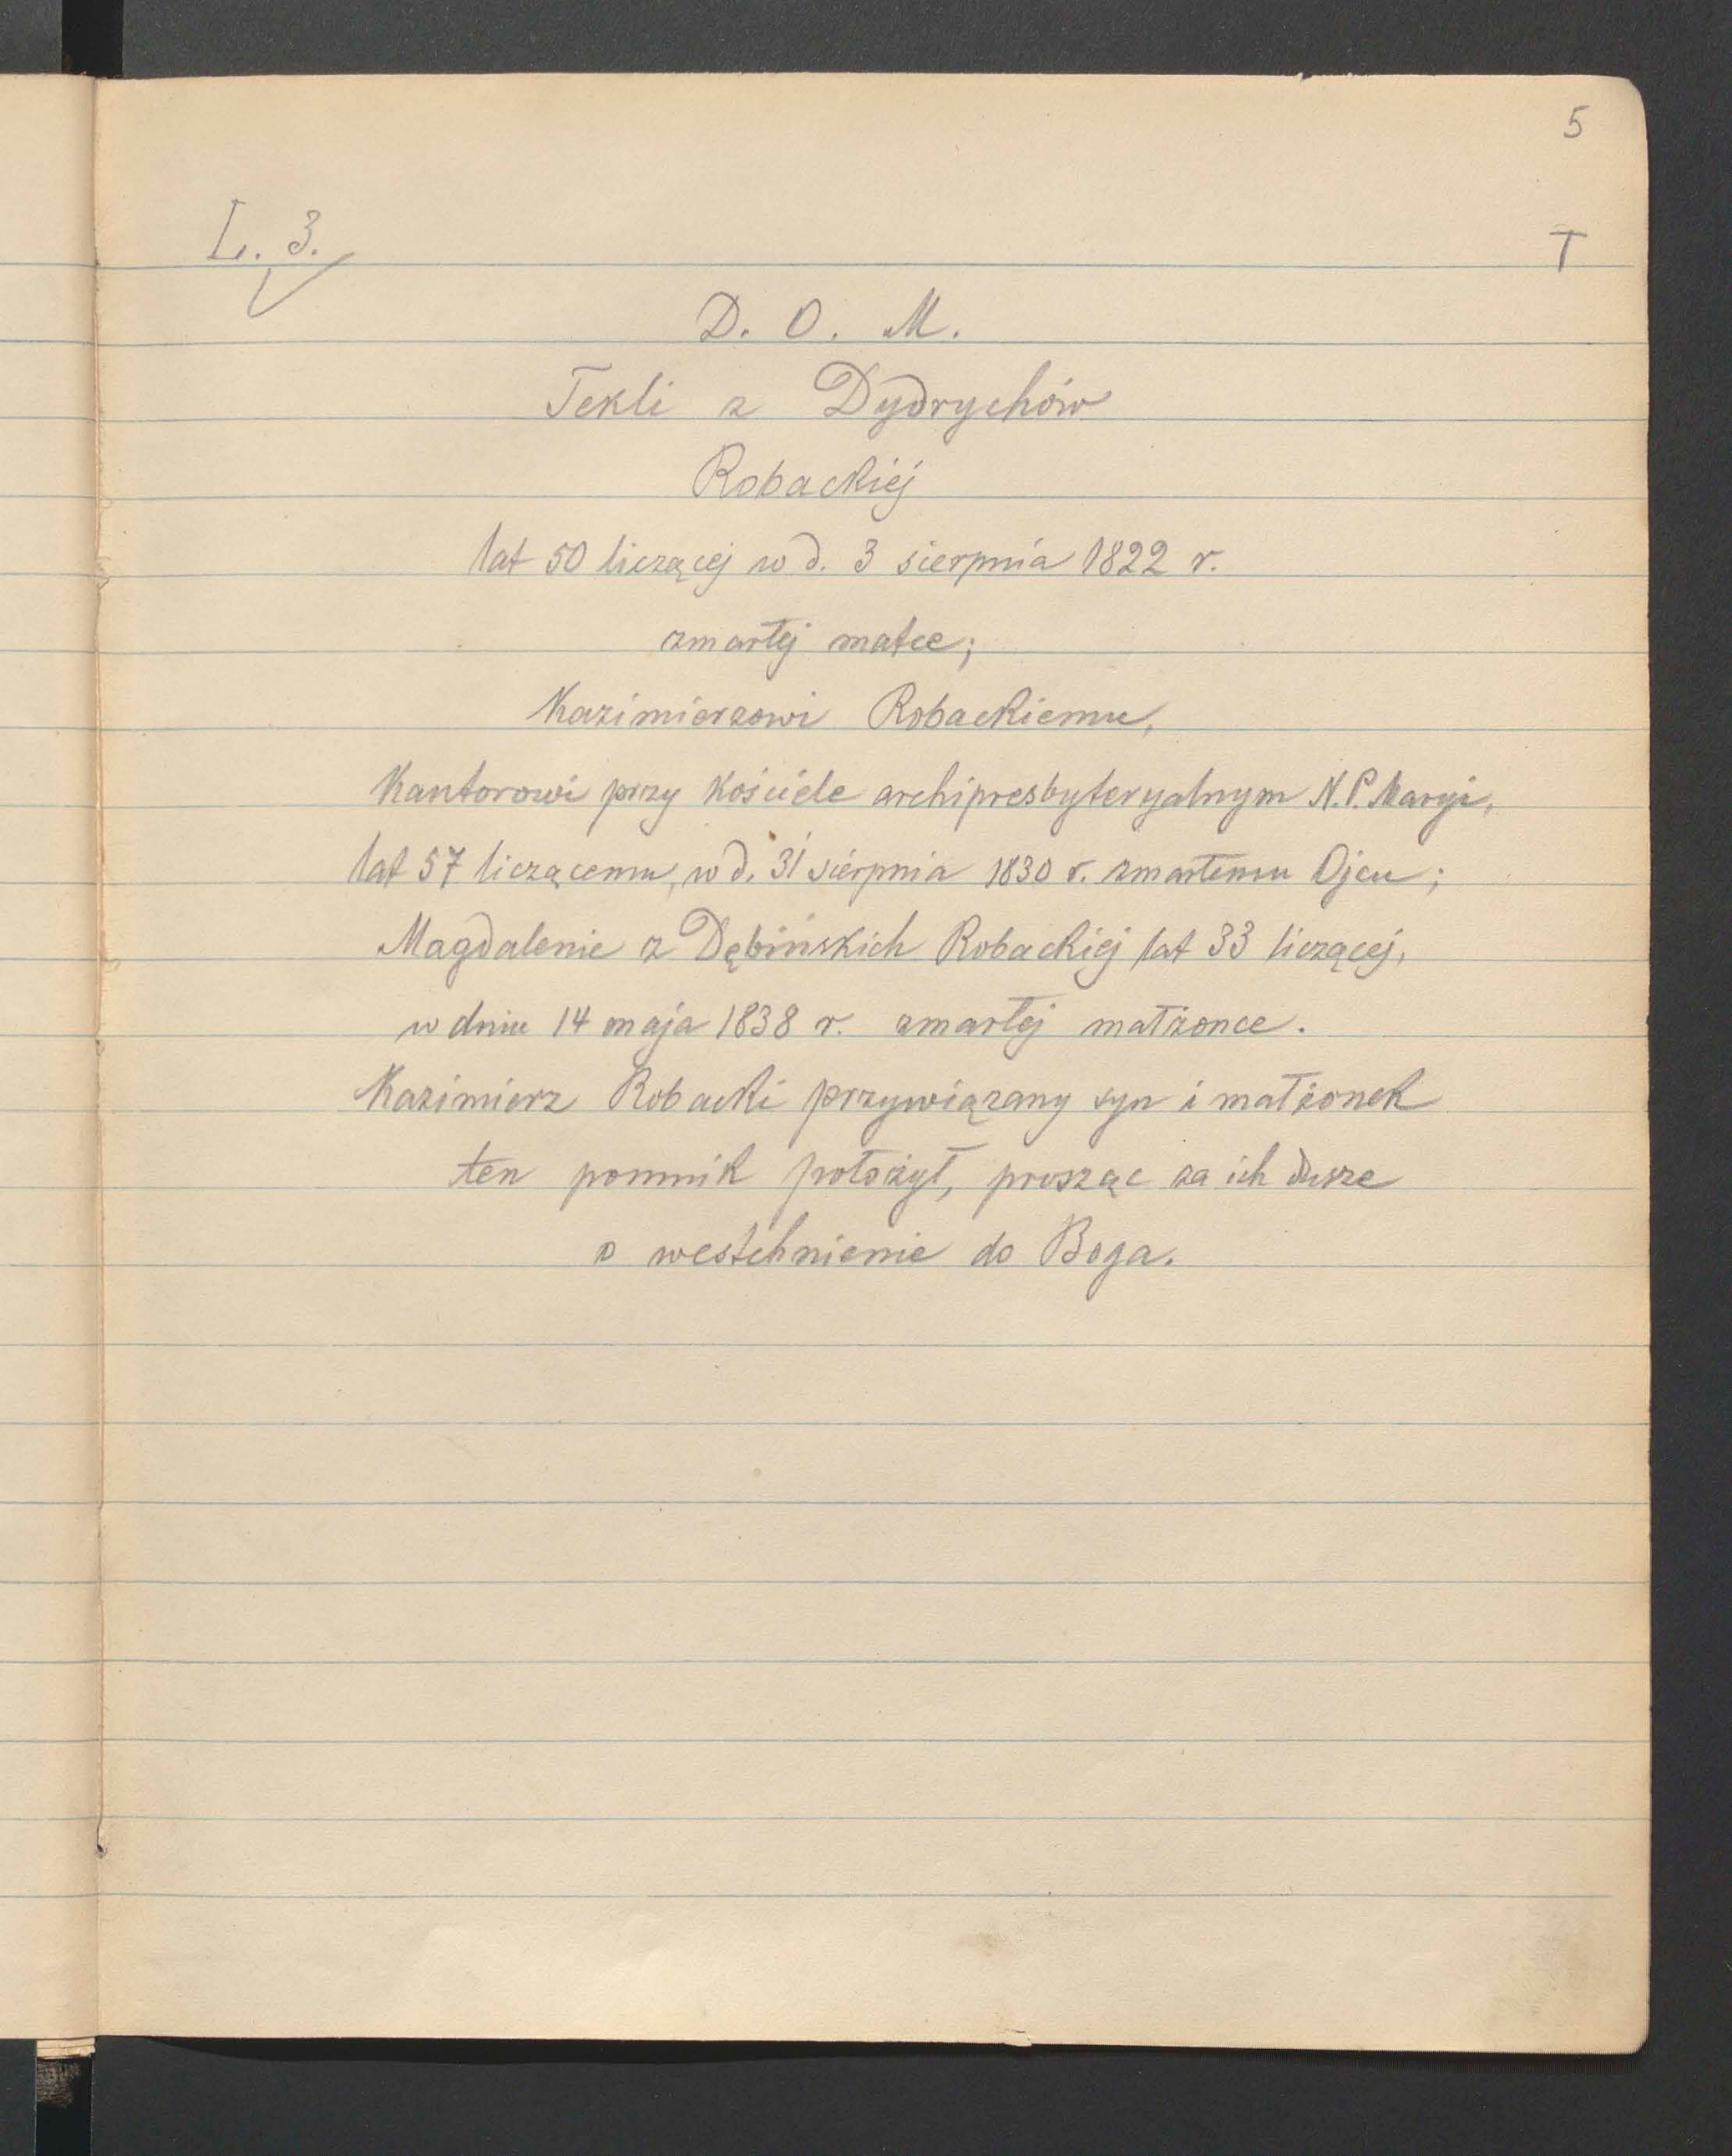 5
L. 3.
T
D. O. M.
Tekli z Dydrychów
Robackiéj
lat 50 liczącej w d. 3 sierpnia 1822 r.
zmarłej matce;
Kazimierzowi Robackiemu,
Kantorowi przy Kościele archipresbyteryalnym N. P. Maryi,
lat 57 liczącemu, w d. 31 sierpnia 1830 r. zmarłemu Ojcu;
Magdalenie z Dębińskich Robackiej lat 33 liczącej,
w dniu 14 maja 1838 r. zmarłej małżonce.
Kazimierz Robacki przywiązany syn i małżonek
ten pomnik położył, prosząc za ich dusze
o westchnienie do Boga.